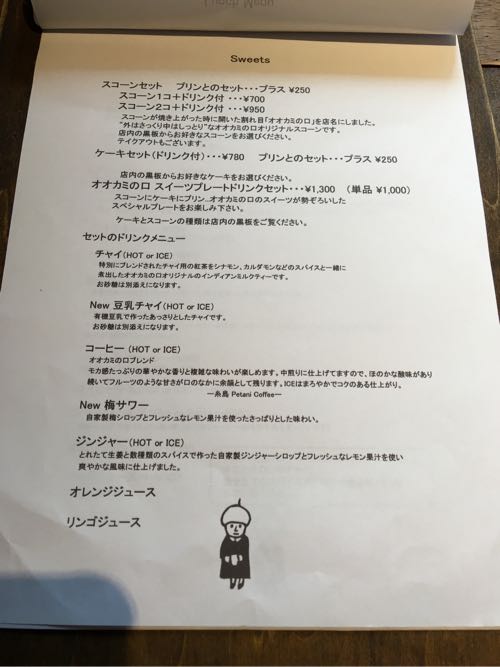 Sweets
スコーンセット　プリンとのセット・・・プラス ¥250
スコーン1コ+ドリンク付 ・・・¥700
スコーン2コ+ドリンク付 ・・・¥950
スコーンが焼き上がった時に開いた割れ目「オオカミの口」を店名にしました。
"外はさっくり中はしっとり"なオオカミの口オリジナルスコーンです。
店内の黒板からお好きなスコーンをお選びください。
テイクアウトもございます。
ケーキセット(ドリンク付)・・・¥780　プリンとのセット・・・プラス ¥250
店内の黒板からお好きなケーキをお選びください。
オオカミの口 スイーツプレートドリンクセット・・・¥1,300　(単品 ¥1,000)
スコーンにケーキにプリン…オオカミの口のスイーツが勢ぞろいした
スペシャルプレートをお楽しみ下さい。
ケーキとスコーンの種類は店内の黒板をご覧ください。
セットのドリンクメニュー
チャイ(HOT or ICE)
特別にブレンドされたチャイ用の紅茶をシナモン、カルダモンなどのスパイスと一緒に
煮出したオオカミの口オリジナルのインディアンミルクティーです。
お砂糖は別添えになります。
New 豆乳チャイ(HOT or ICE)
有機豆乳で作ったあっさりとしたチャイです。
お砂糖は別添えになります。
コーヒー (HOT or ICE)
オオカミの口ブレンド
モカ感たっぷりの華やかな香りと複雑な味わいが楽しめます。中煎りに仕上げてますので、ほのかな酸味があり
続いてフルーツのような甘さが口のなかに余韻として残ります。ICEはまろやかでコクのある仕上がり。
―糸島 Petani Coffee―
New 梅サワー
自家製梅シロップとフレッシュなレモン果汁を使ったさっぱりとした味わい。
ジンジャー(HOT or ICE)
とれたて生姜と数種類のスパイスで作った自家製ジンジャーシロップとフレッシュなレモン果汁を使い
爽やかな風味に仕上げました。
オレンジジュース
リンゴジュース